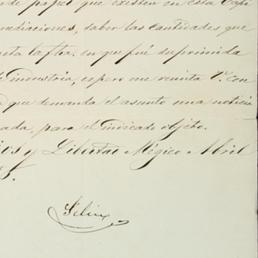 de papel que existen en esta Capi
mediaciones, saber las cantidades que
esta la fha. en que fué suprimida
de industria, espero me remita V. con
que demanda el asunto una noticia
ada, para el indicado objeto.
Dios y Libertad Mégico Abril